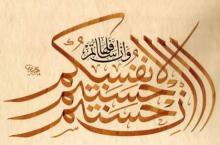 إن أحسنتم أحسنتم لأنفسكم
وإن أسأتم فلها